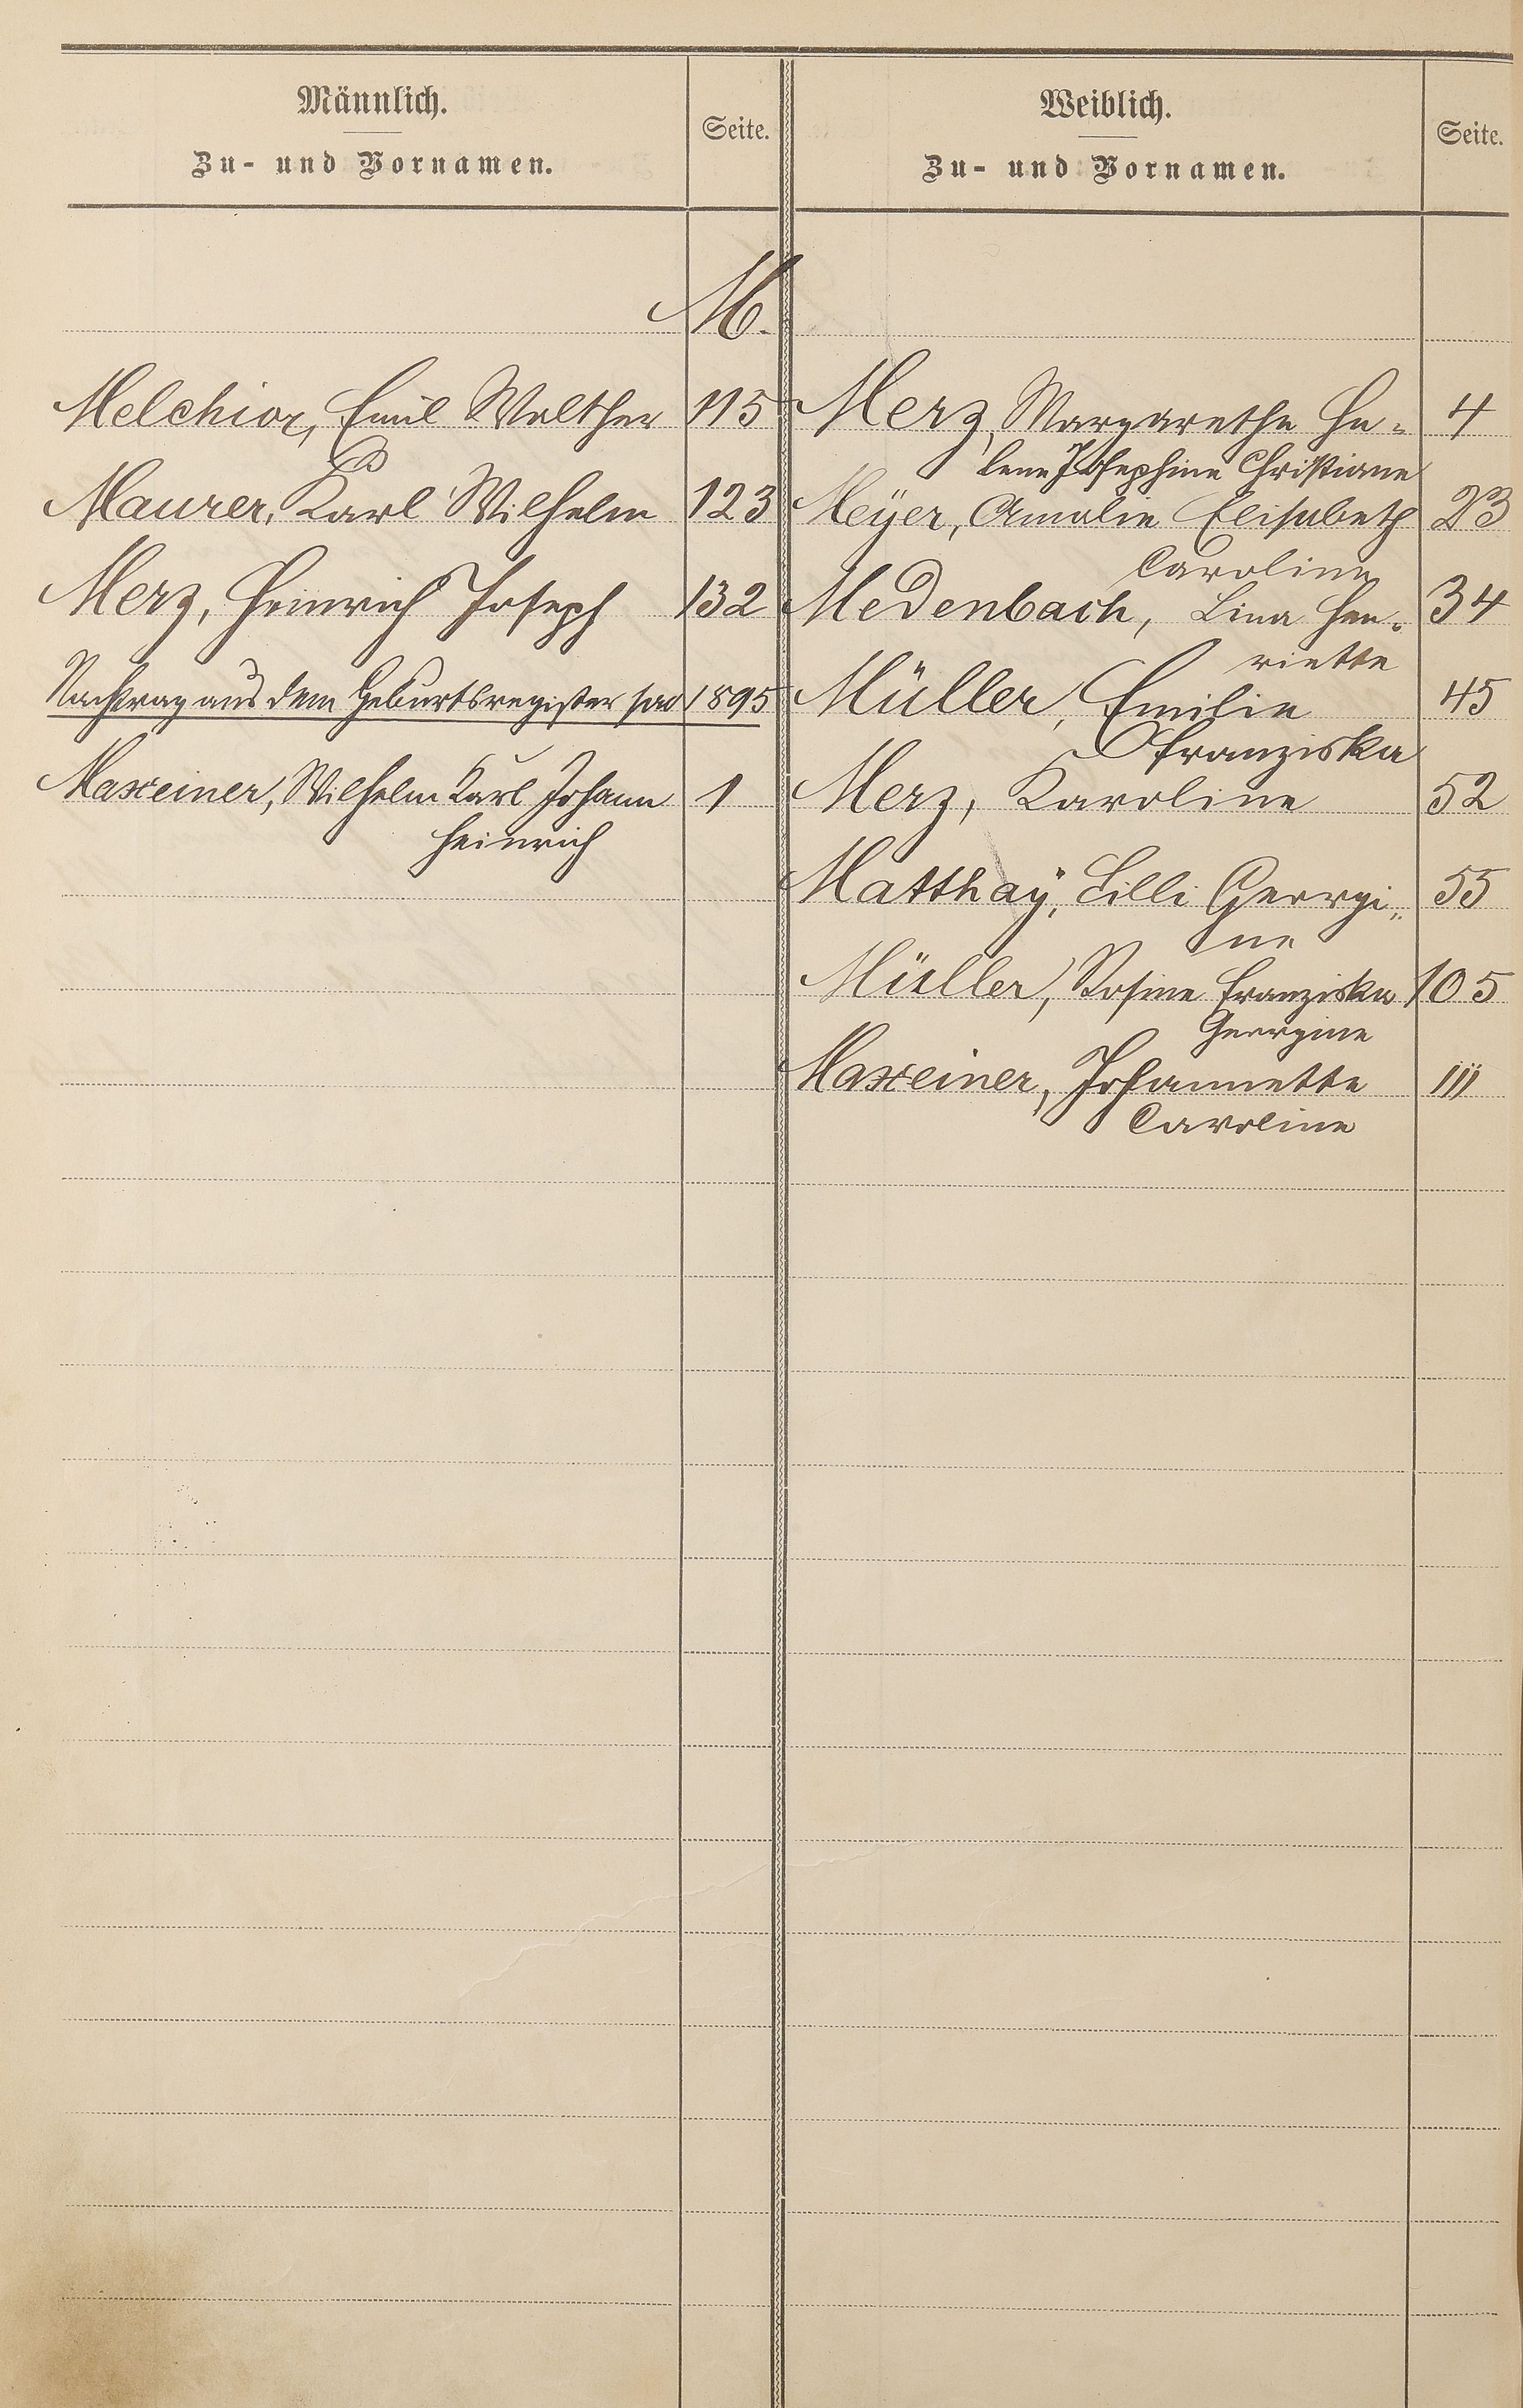 Männlich.
Zu- und Vornamen.
Seite.
Weiblich.
Zu- und Vornamen.
Seite.
M.
Melchior, Emil Walther 115
Maurer, Karl Wilhelm 123
Merz, Heinrich Joseph 132
Nachtrag aus dem Geburtsregister pro 1895
Maxeiner, Wilhelm Karl Johann 1
Heinrich
Merz, Margarethe He- 4
lene Josephine Christiane
Meÿer, Amalie Elisabeth 23
Caroline
Medenbach, Lina Hen- 34
riette
Müller, Emilie 45
Franziska
Merz, Karoline 52
Matthaÿ, Lilli Georgi- 55
ne
Müller, Rosine Franziska 105
Georgine
Maxeiner, Johannette 111
Caroline